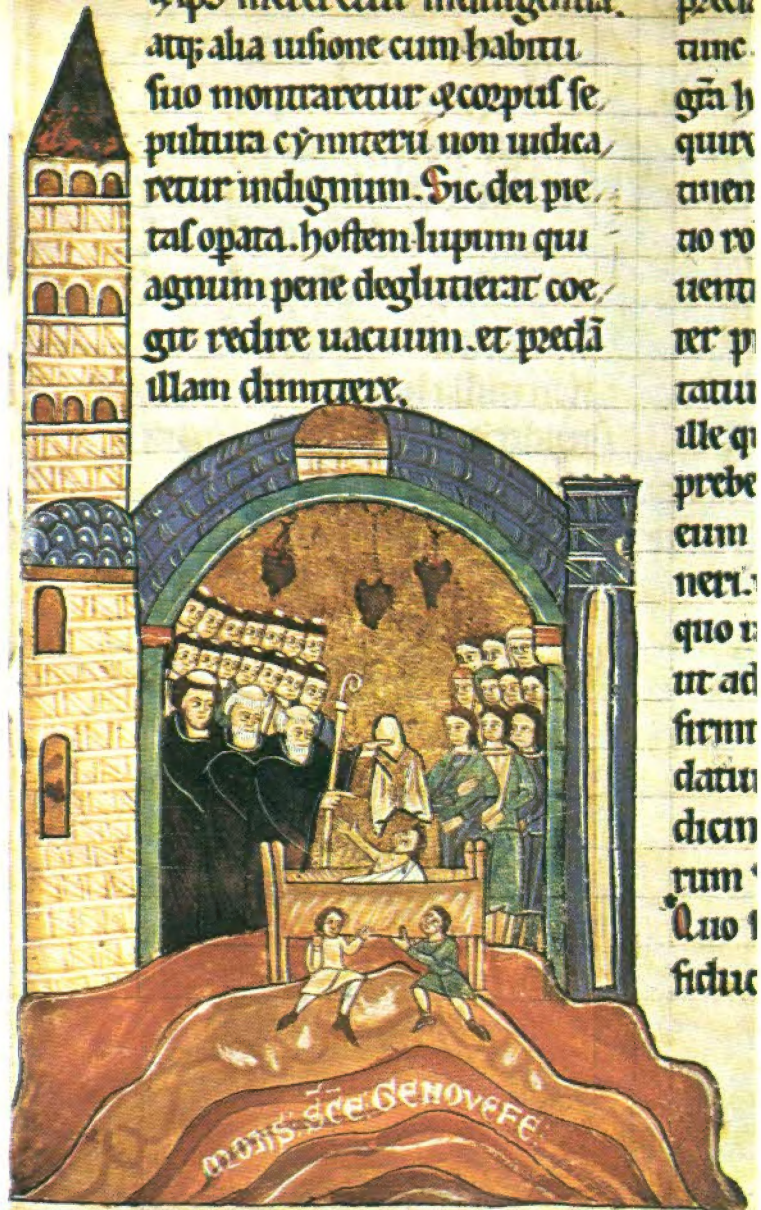 atq; alia uisione cum habitu
suo monstraretur & corpus se,
pultura cymiterii non iudica,
retur indignum. Sic dei pie,
tas opata. hostem lupum qui
agnum pene deglutierat coe,
git redire uacuum. et predā
illam dimittere.
MONS: SCE GENOVEFE
tunc
gra h
quire
ille q
prebe
cum
neri.
quo
ut ad
firmi
datu
dicin
rum
Quo
fiduc